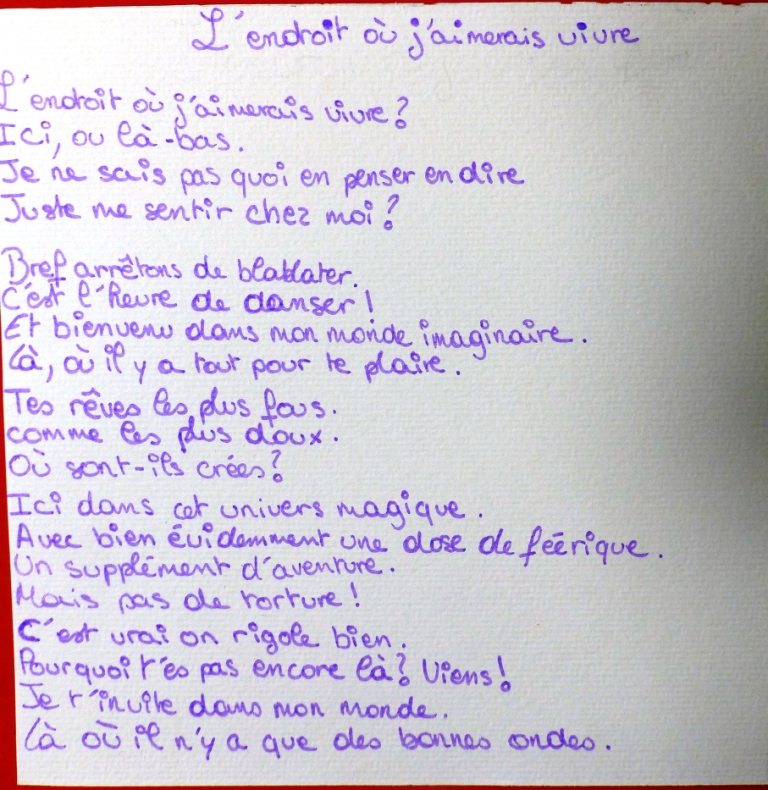 L'endroit où j'aimerais vivre
L'endroit où j'aimerais vivre?
Ici, ou là-bas.
Je ne sais pas quoi en penser en dire
Juste me sentir chez moi?
Bref arrêtons de blablater.
C'est l'heure de danser!
Et bienvenu dans mon monde imaginaire.
Là, où il y a tout pour te plaire.
Tes rêves les plus fous.
comme les plus doux.
Où sont-ils crées?
Ici dans cet univers magique.
Avec bien évidemment une dose de féérique.
Un supplément d'aventure.
Mais pas de torture!
C'est vrai on rigole bien.
Pourquoi t'es pas encore là? Viens!
Je t'invite dans mon monde.
Là où il n'y a que des bonnes ondes.